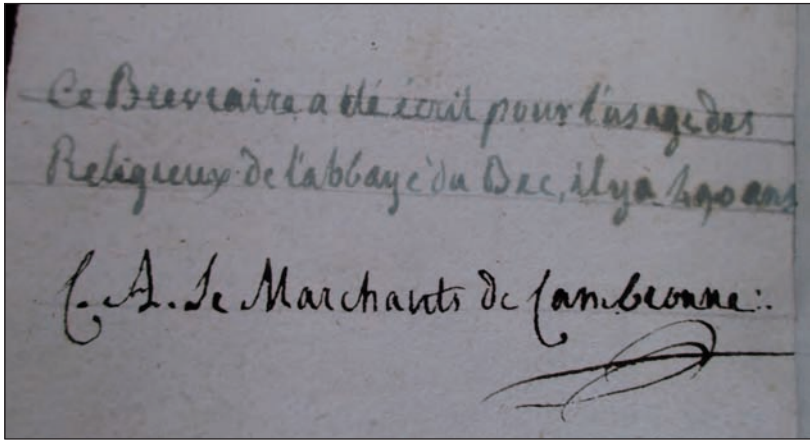 Ce Breviaire a été écrit pour l'usage des
Religieux de l'abbaye du Bec, il y a 490 ans
C. A. Le Marchants de Cambronne:.